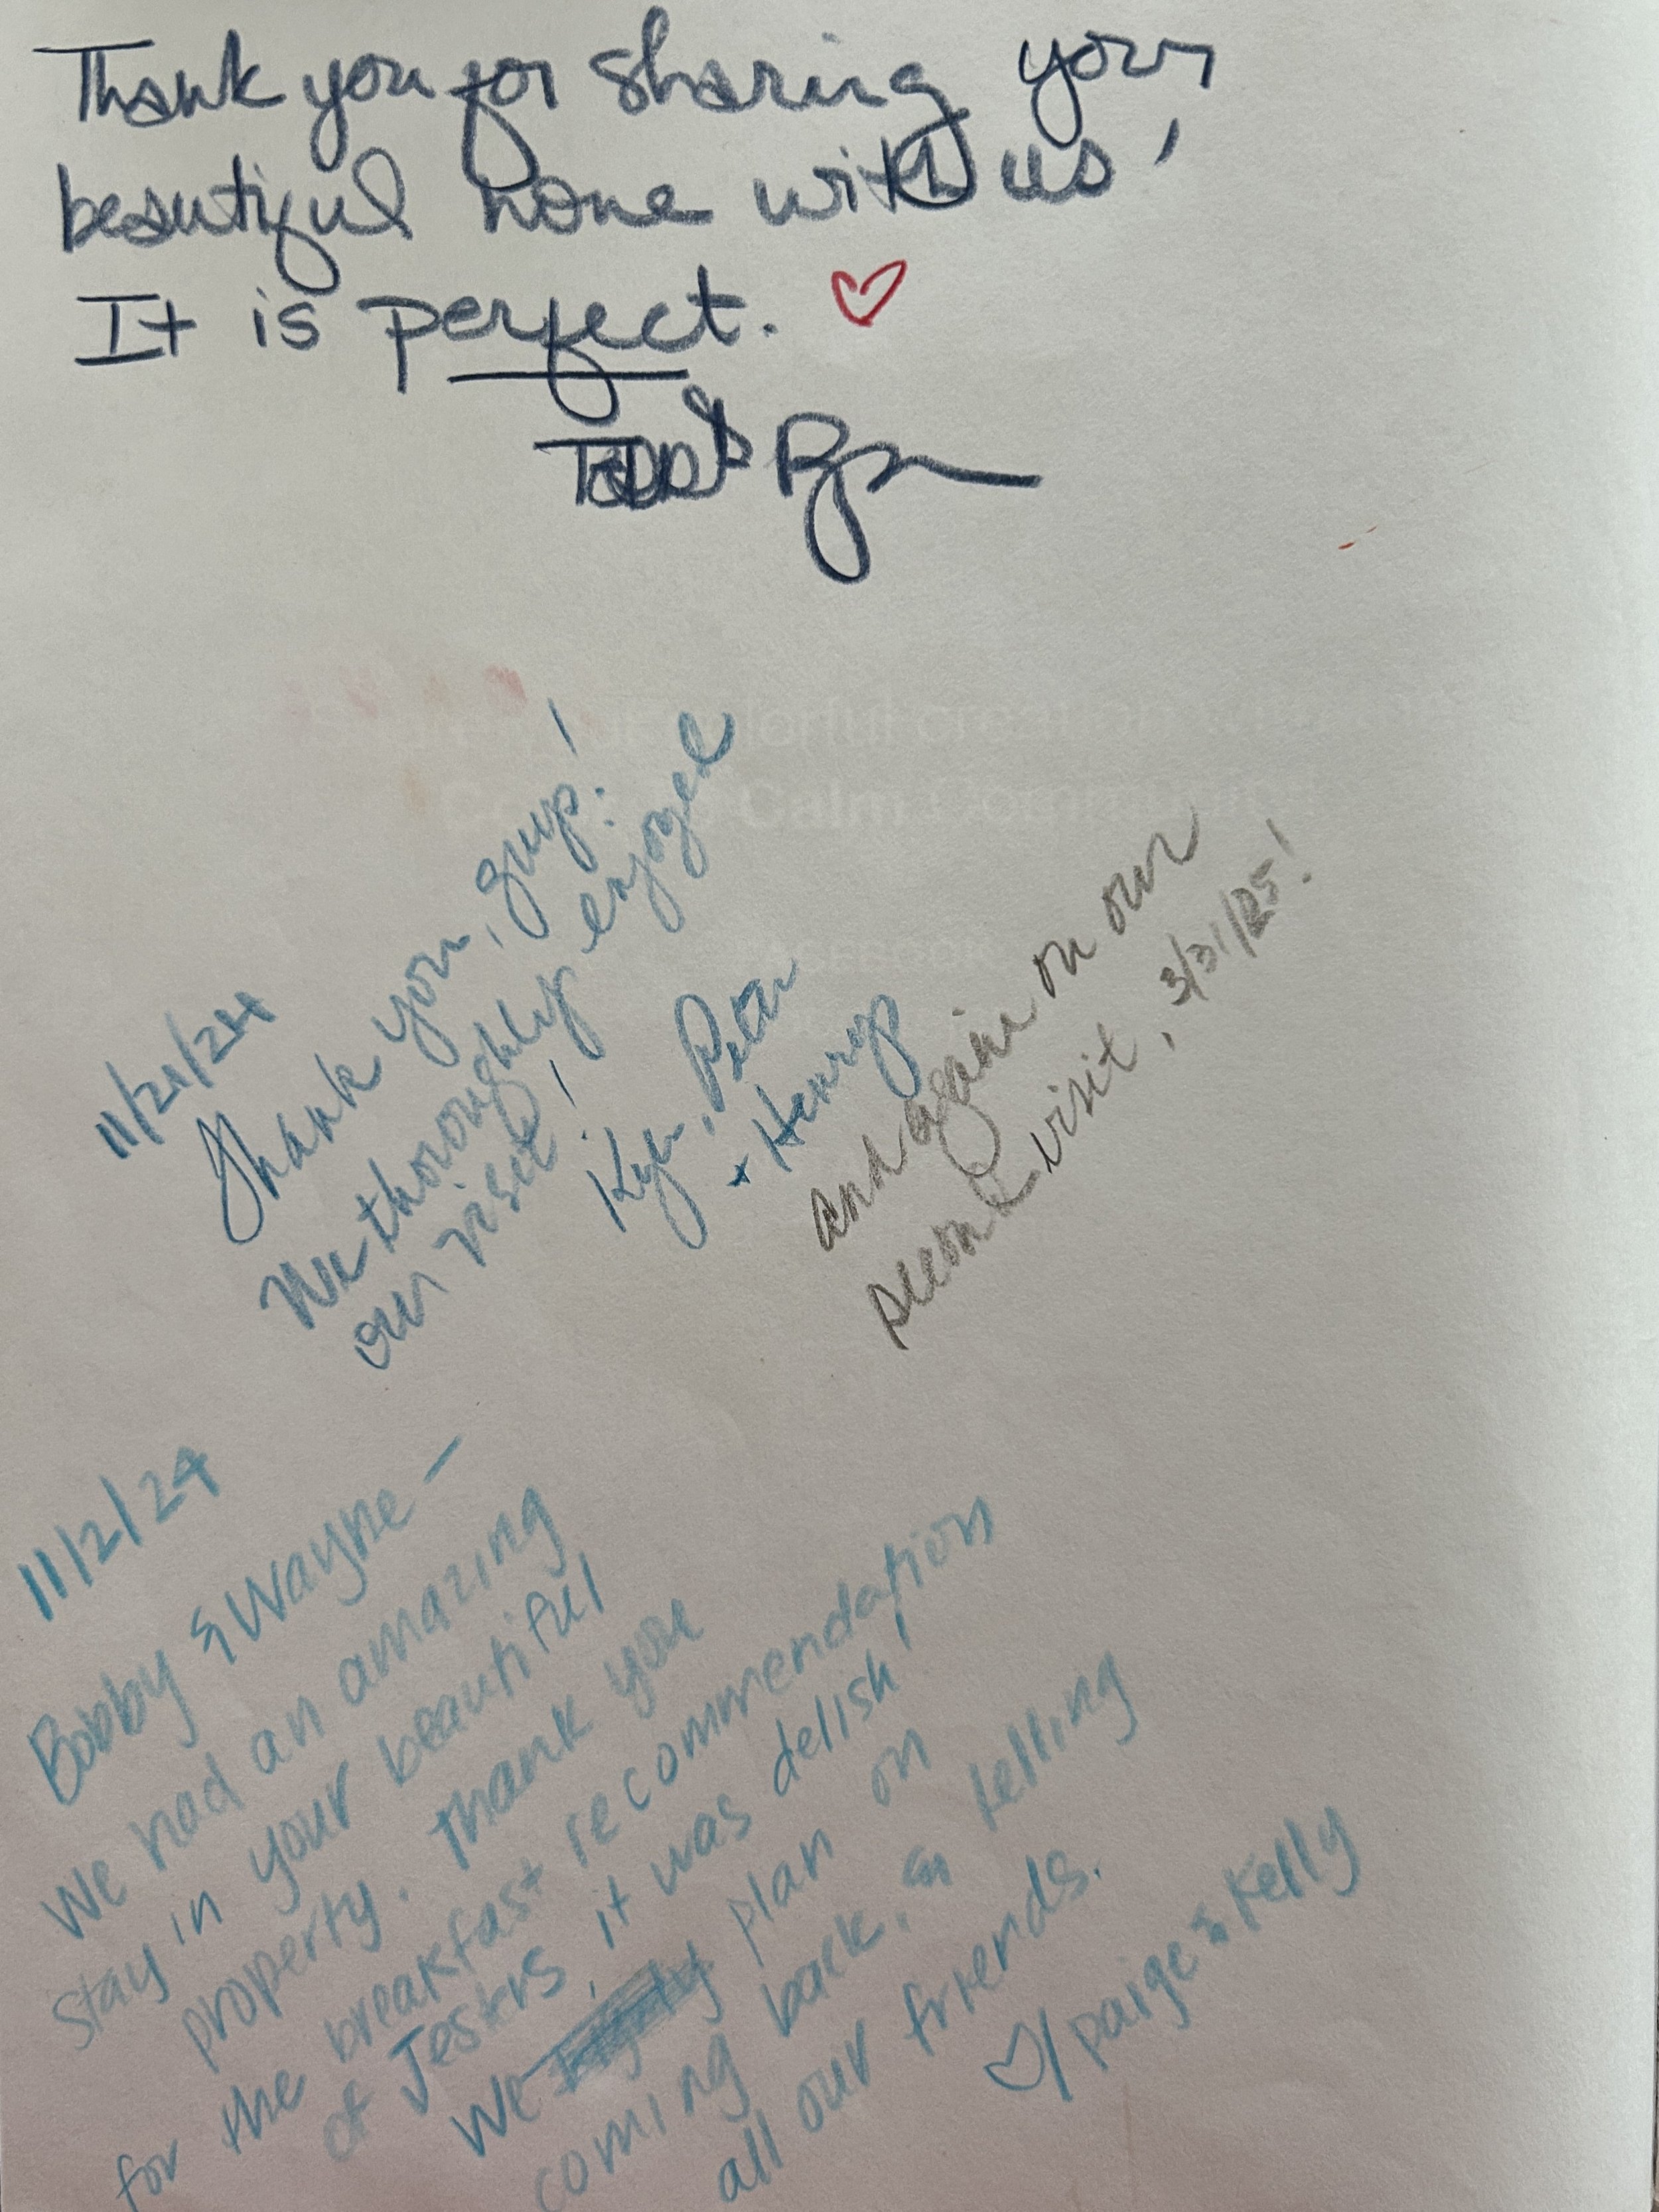 Thank you for sharing your
beautiful home with us!
It is perfect. ♡
Todd &
11/21/24
Thank you, guys!
We thoroughly enjoyed
our visit!
Kyu, Peter
+ Henry
and again on our
second visit, 3/31/25!
11/2/24
Bobby & Wayne —
We had an amazing
stay in your beautiful
property. Thank you
for the breakfast recommendation
of Jesters, it was delish!
We plan on
coming back, & telling
all our friends.
♡/ paige & Kelly